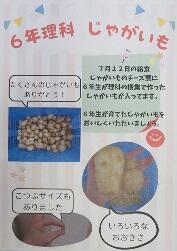 6年理科 じゃがいも
たくさんのじゃがいも
ありがとう！
7月12日の給食
じゃがいものチーズ煮に
6年生が理科の授業で作った
じゃがいもが入ってます。
6年生が育てたじゃがいもを
おいしくいただきましょう。
こつぶサイズも
ありました
いろいろな
おおきさ